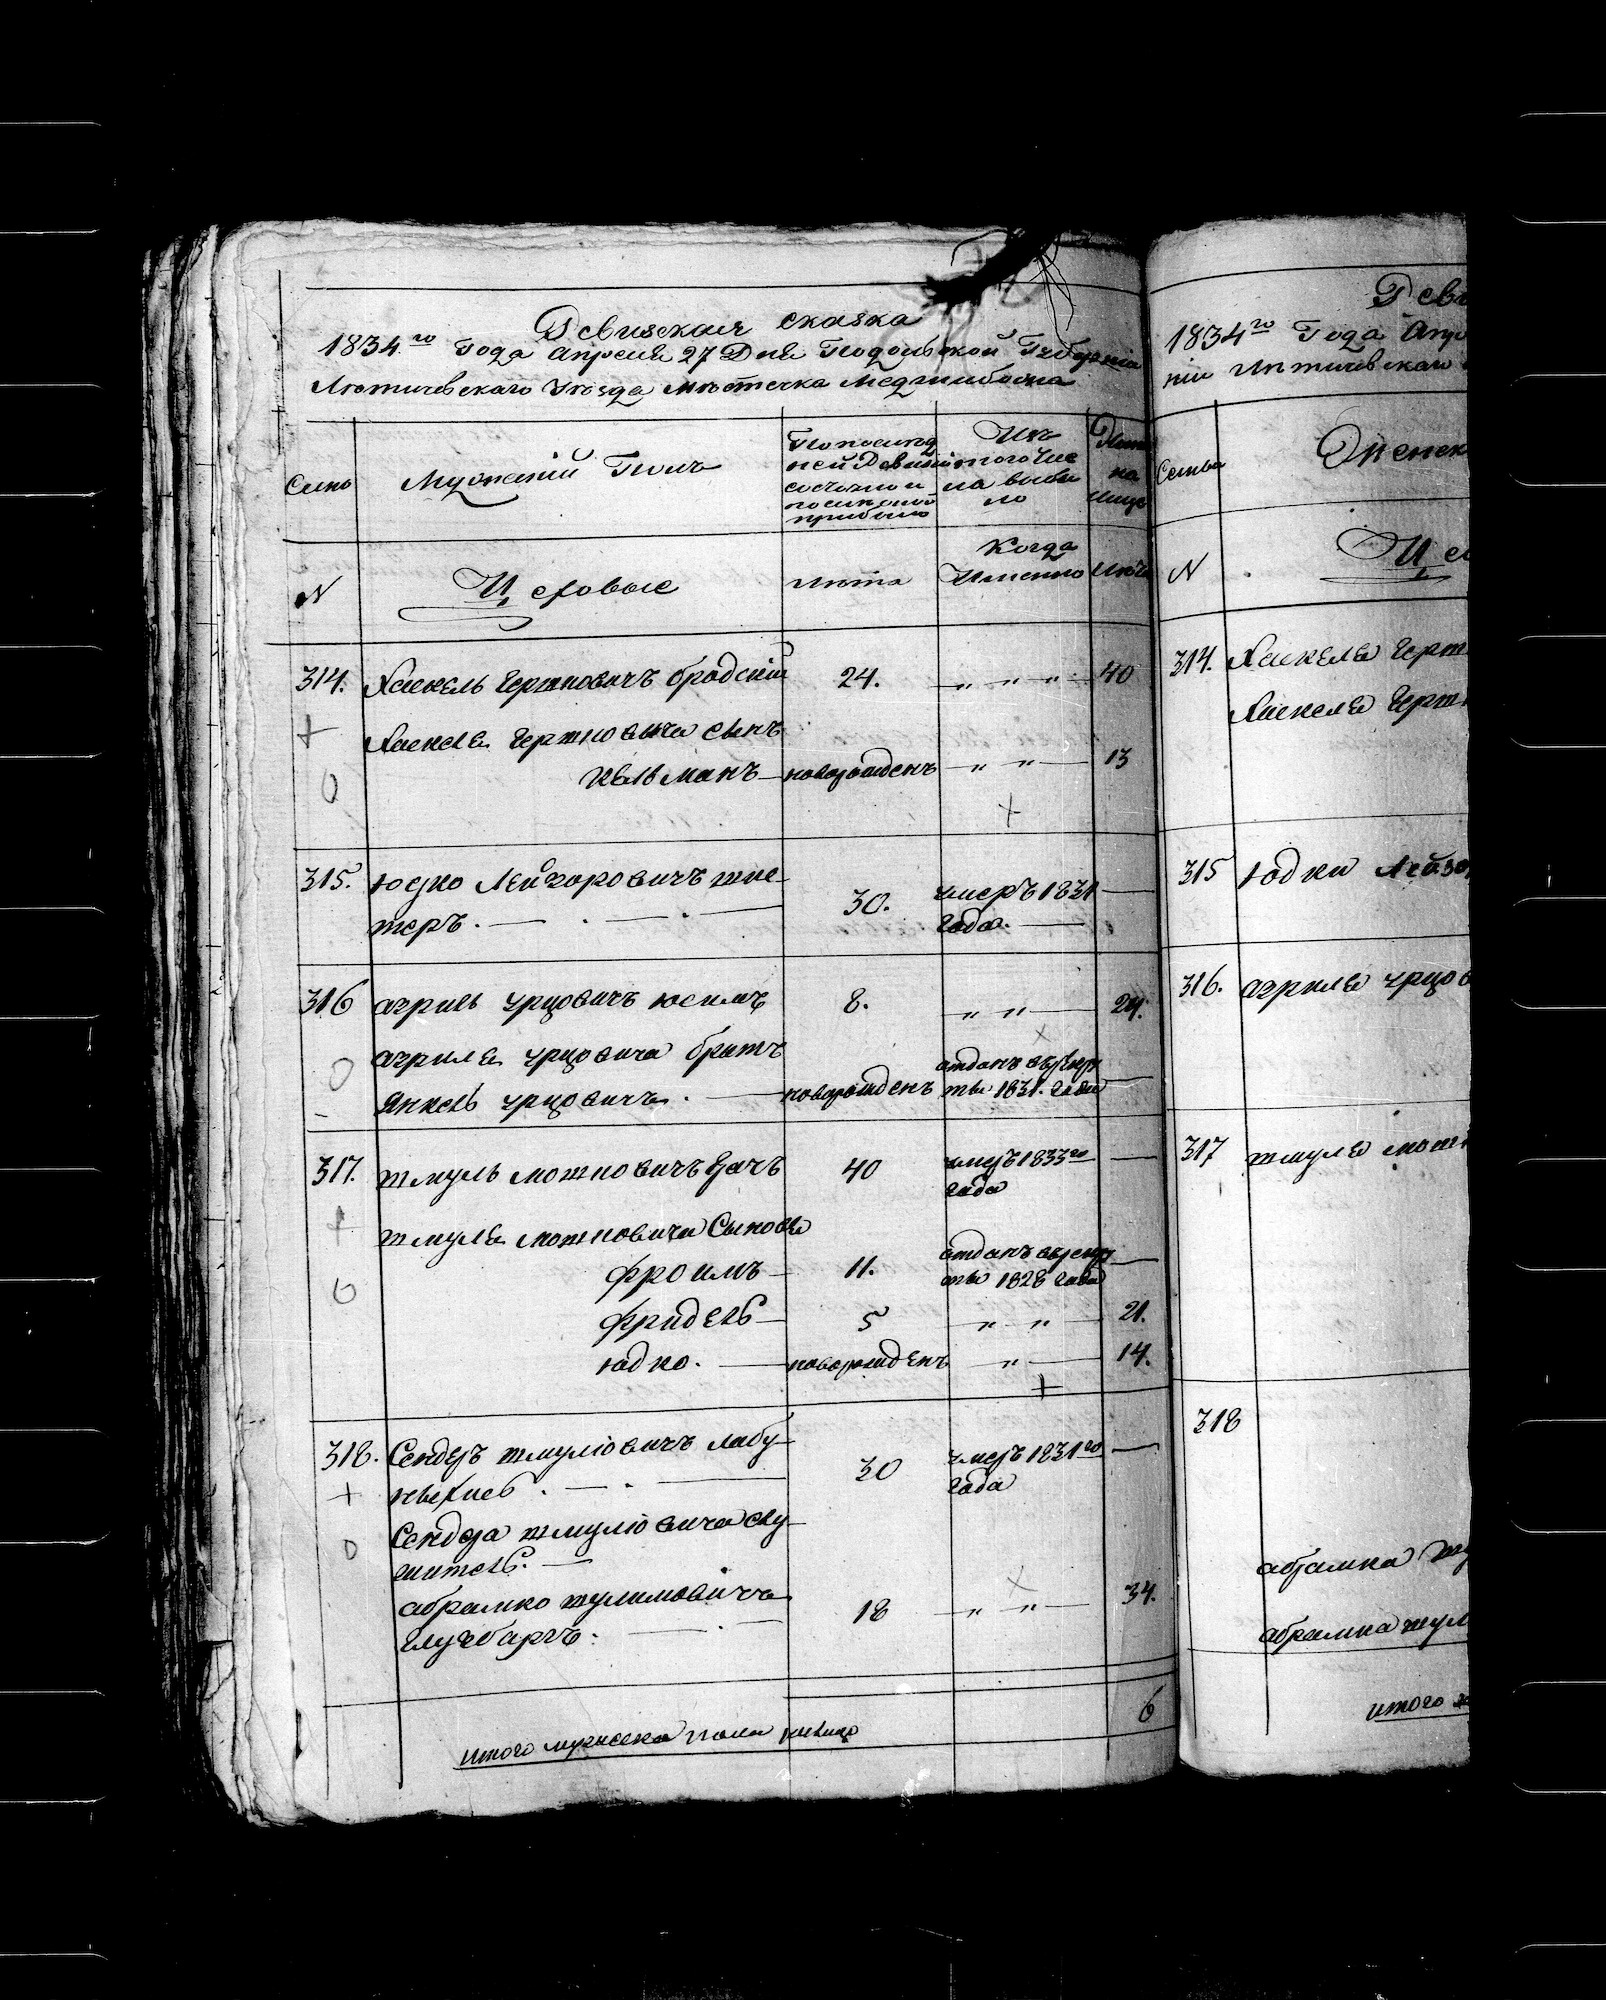 Ревизская сказка
1834го года Апреля 27 дня Подольской Губерніи
Летичевского уезда местечка Меджибожа
Семьи
Мужеский Полъ
По последней ревизіи состояло и после оной прибыло
Изъ того числа выбыло
Ныне на лицо
N
Лета
Когда именно
Лета
314. Хаскель Гершковичъ Бродскій 24. " " " 40
Хаскеля Гершковича сынъ
Кельманъ новорожденъ " " 13
315. Юдко Лейзоровичъ Шус-
теръ. 30. умеръ 1831
года.
316 Азриль Урцовичъ 8. " " 24.
Азриля Урцовича братъ отданъ въ рекру
Янкель Урцовичъ. новорожденъ ты 1831. года
317. Шмуль Мошковичъ 40 умеръ 1833го
года
Шмуля Мошковича сыновья
Фроимъ 11. отданъ въ рекру
ты 1828 года
Фридель 5 " " 21.
Юдко. новорожденъ " 14.
318. Сендеръ Шмуліовичъ Лабу- 30 умеръ 1831го
года
Сендера Шмуліовича слу-
житель.
Абрамко Шулимовичъ 18 " " 34.
6
Итого мужеска пола налицо
Реви
1834го года Апре
ніи Летичевскаго
Семьи
Женск
N
314. Хаскеля Герш
Хаскеля Герш
315 Юдки Лейзо
316. Азриля Урцов
317 Шмуля Мошк
318
Абрамка Шу
Абрамка Шул
Итого